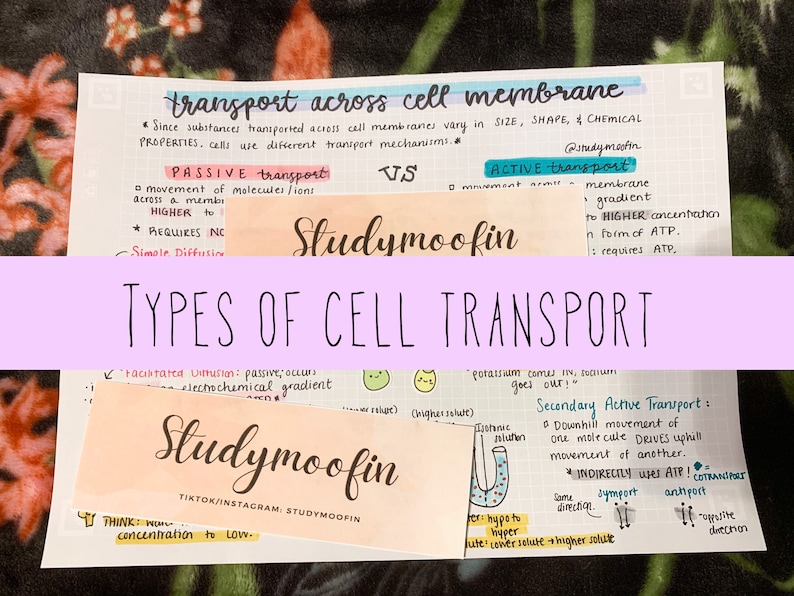 transport across cell membrane
* Since substances transported across cell membranes vary in SIZE, SHAPE, & CHEMICAL
PROPERTIES, cells use different transport mechanisms.*
@studymoofin
PASSIVE transport
VS
ACTIVE transport
movement of molecules/ions
across a
HIGHER to
* REQUIRES
movement across a membrane
gradient
to HIGHER concentration
form of ATP.
: requires ATP.
Studymoofin
Simple Diffusion
TYPES OF CELL TRANSPORT
Facilitated Diffusion: passive, occurs
electrochemical gradient
potassium comes IN, sodium
goes OUT!"
(lower solute)
(higher solute)
Isotonic
solution
Secondary Active Transport:
Downhill movement of
one molecule DRIVES uphill
movement of another.
* INDIRECTLY uses ATP!
= COTRANSPORT
Same
direction.
symport
antiport
-opposite
direction
Studymoofin
TIKTOK/INSTAGRAM: STUDYMOOFIN
THINK:
concentration to LOW.
: hypo to
hyper
: lower solute → higher solute